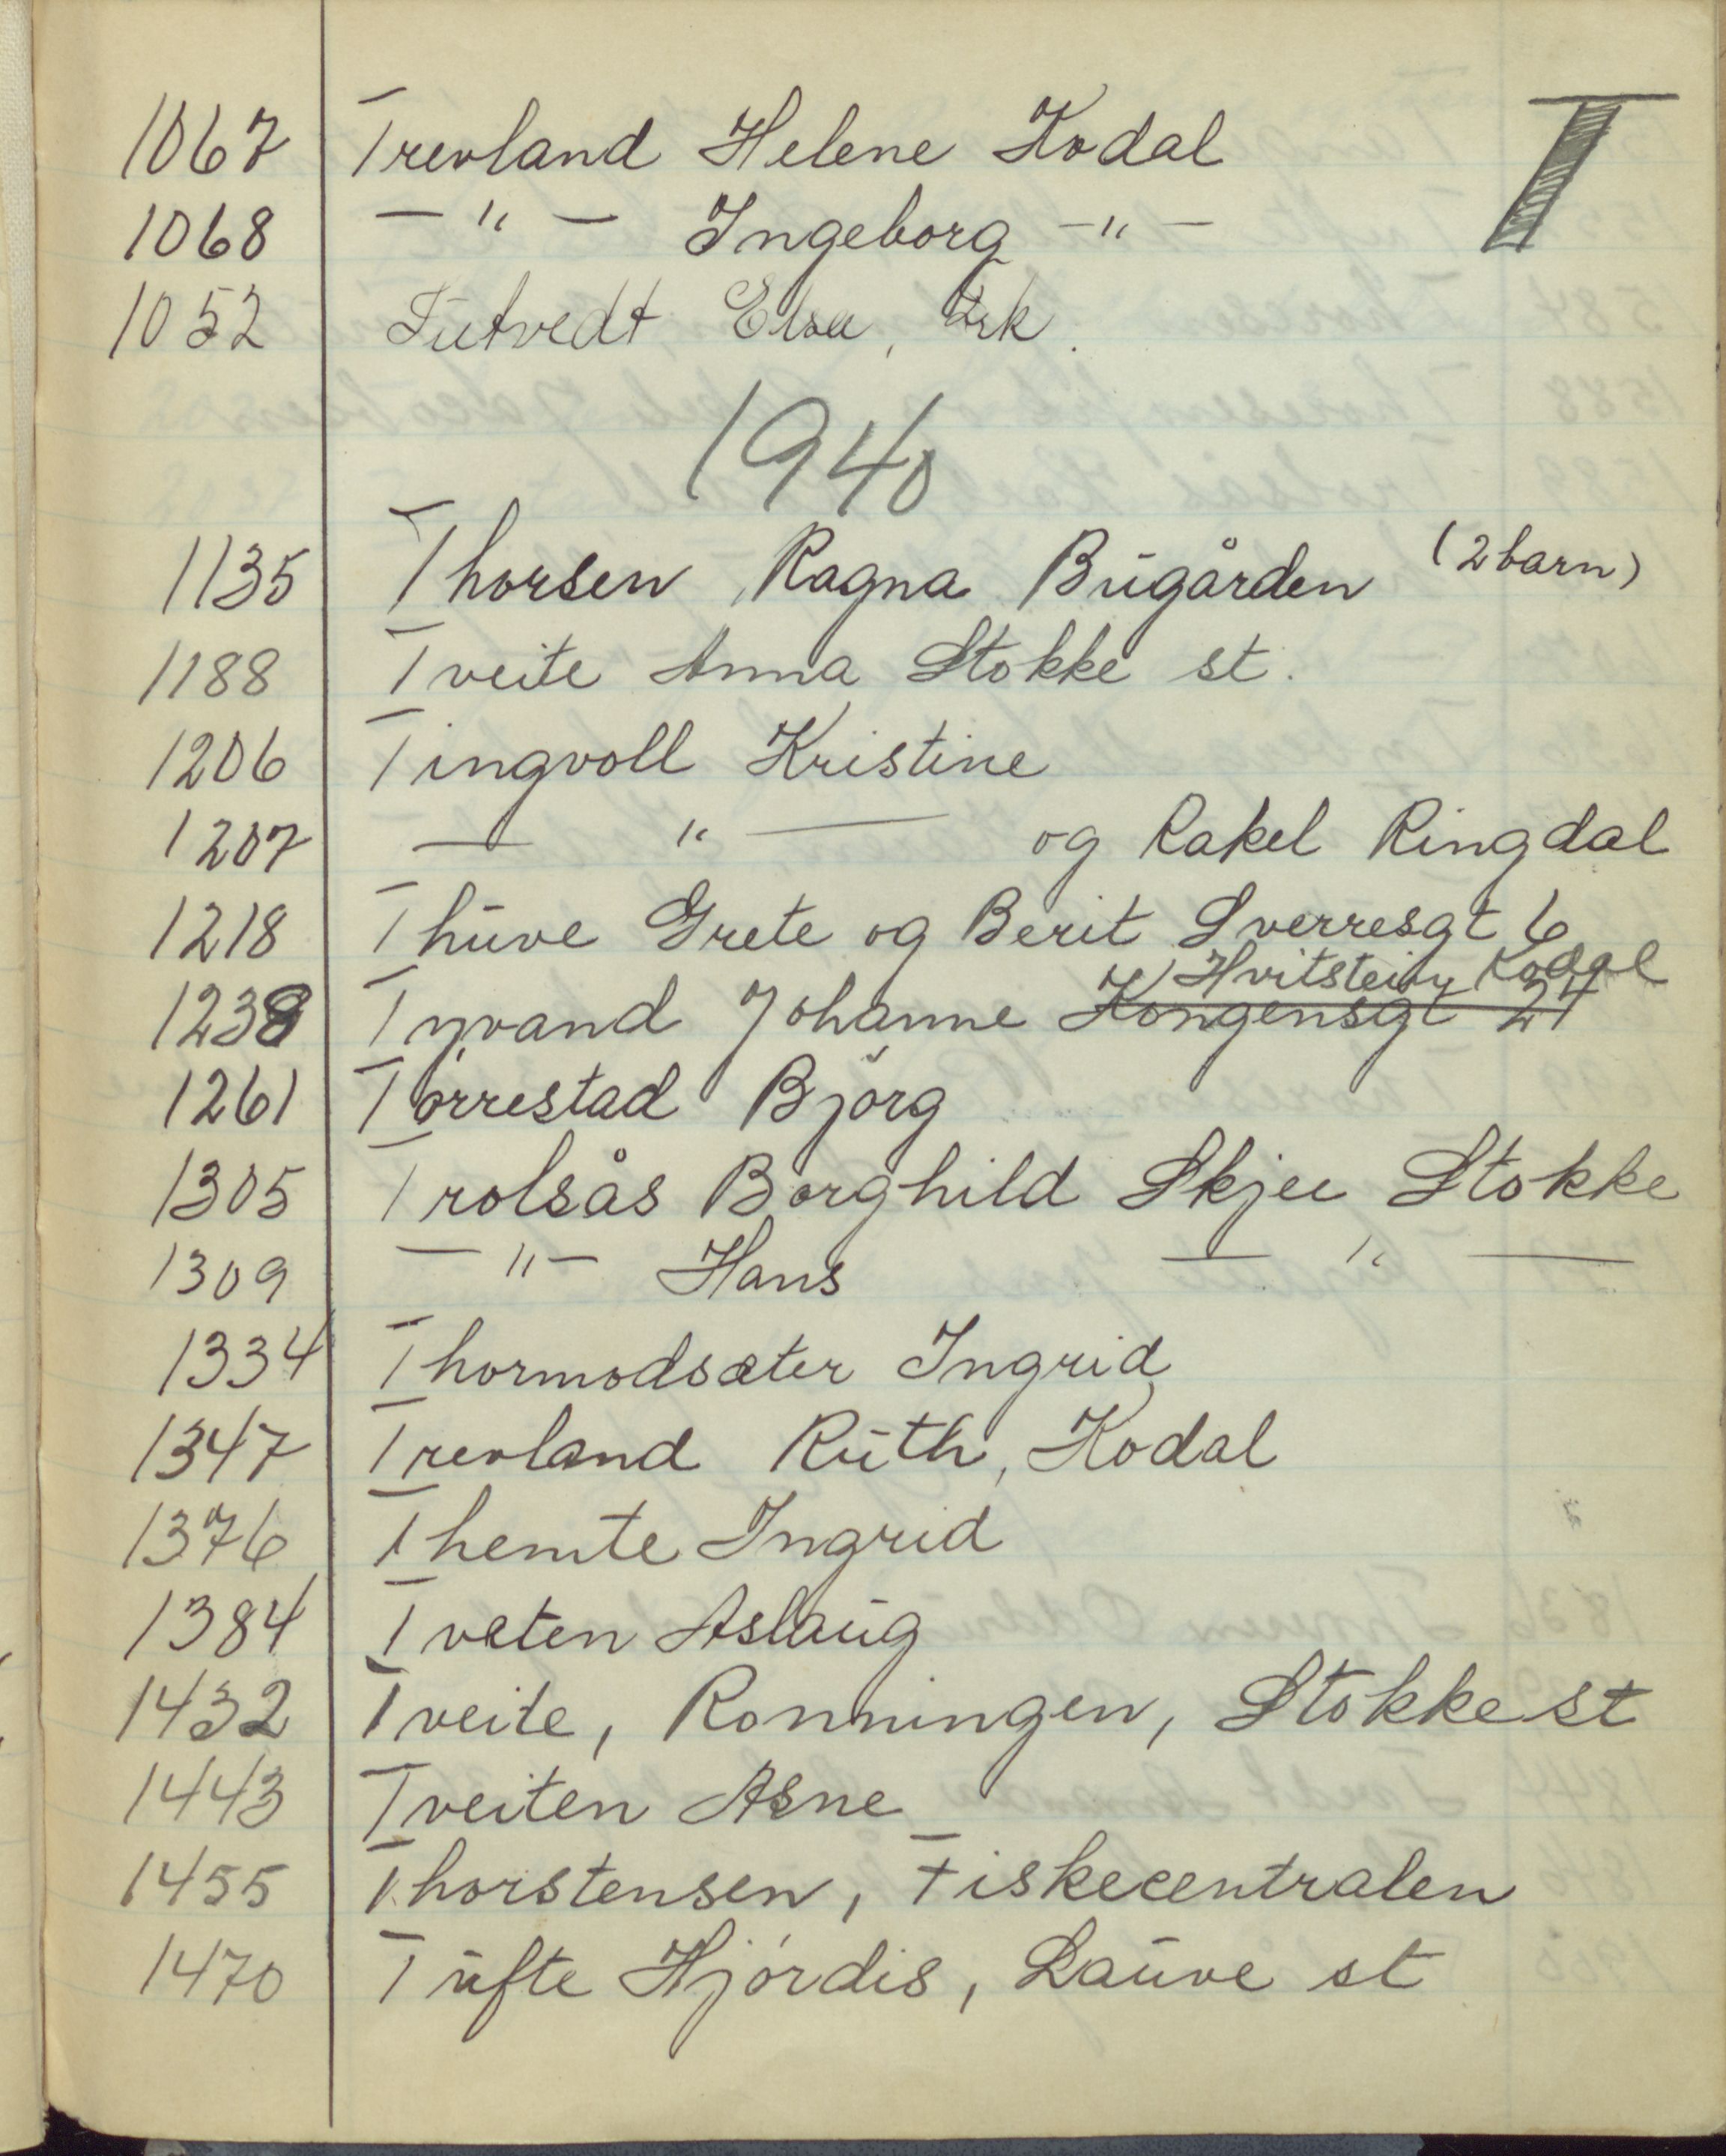 T
1067 Trevland Helene Kodal
1068 — " — Ingeborg — " —
1052 Tutvedt Elsa, Frk.
1940
1135 Thorsen, Ragna Bugården (2 barn)
1188 Tveite Anna Stokke st.
1206 Tingvoll Kristine
1207 — " — og Rakel Ringdal
1218 Thuve Grete og Berit Sverresgt 6
Hvitstein, Kodal
1238 Tyvand Johanne Kongensgt 24
1261 Tørrestad Bjørg
1305 Trolsås Borghild Skjee Stokke
1309 — " — Hans — " —
1334 Thormodsæter Ingrid
1347 Trevland Ruth, Kodal
1376 Themte Ingrid
1384 Tveten Aslaug
1432 Tveite, Rønningen, Stokke st
1443 Tveiten Asne
1455 Thorstensen, Fiskecentralen
1470 Tufte Hjørdis, Lauve st